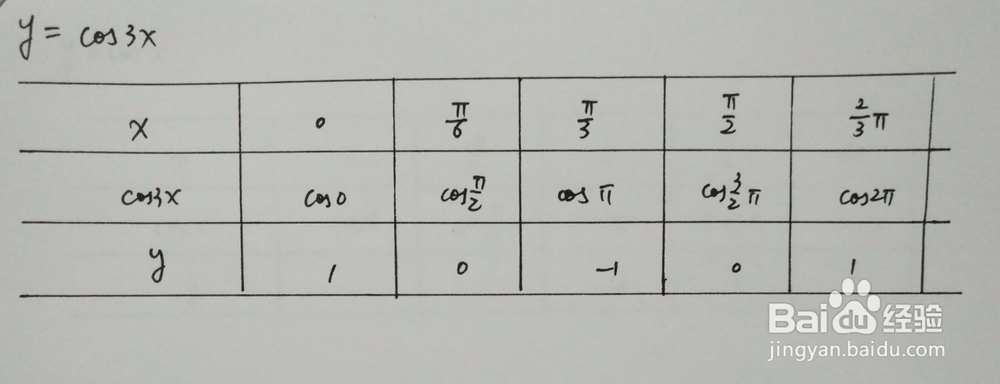 y = cos3x
x 0 π/6 π/3 π/2 2/3 π
cos3x cos0 cos π/2 cos π cos 3/2 π cos2π
y 1 0 -1 0 1
Baidu 经验
jingyan.baidu.com